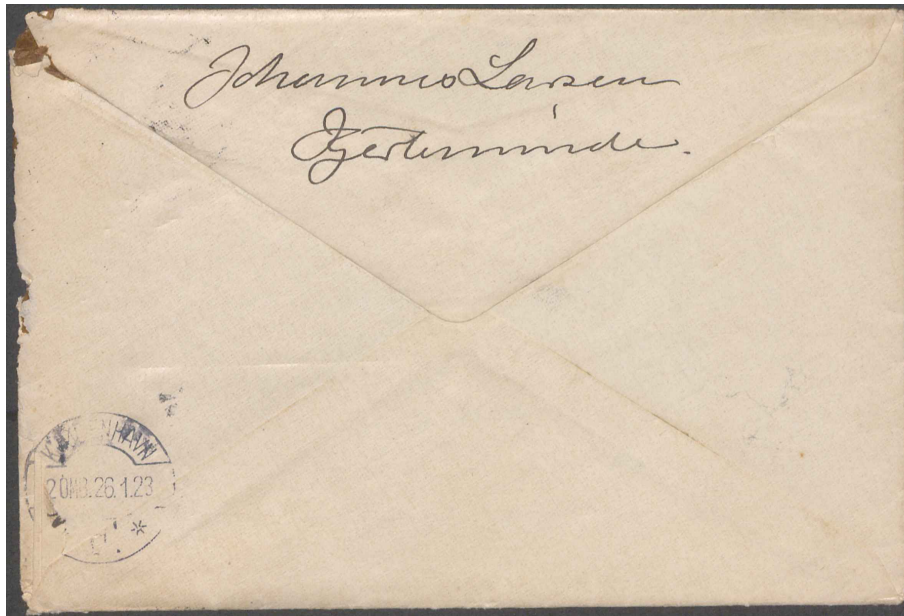 Johannes Larsen
Kjerteminde.
KJØBENHAVN
2OMB.26.1.23